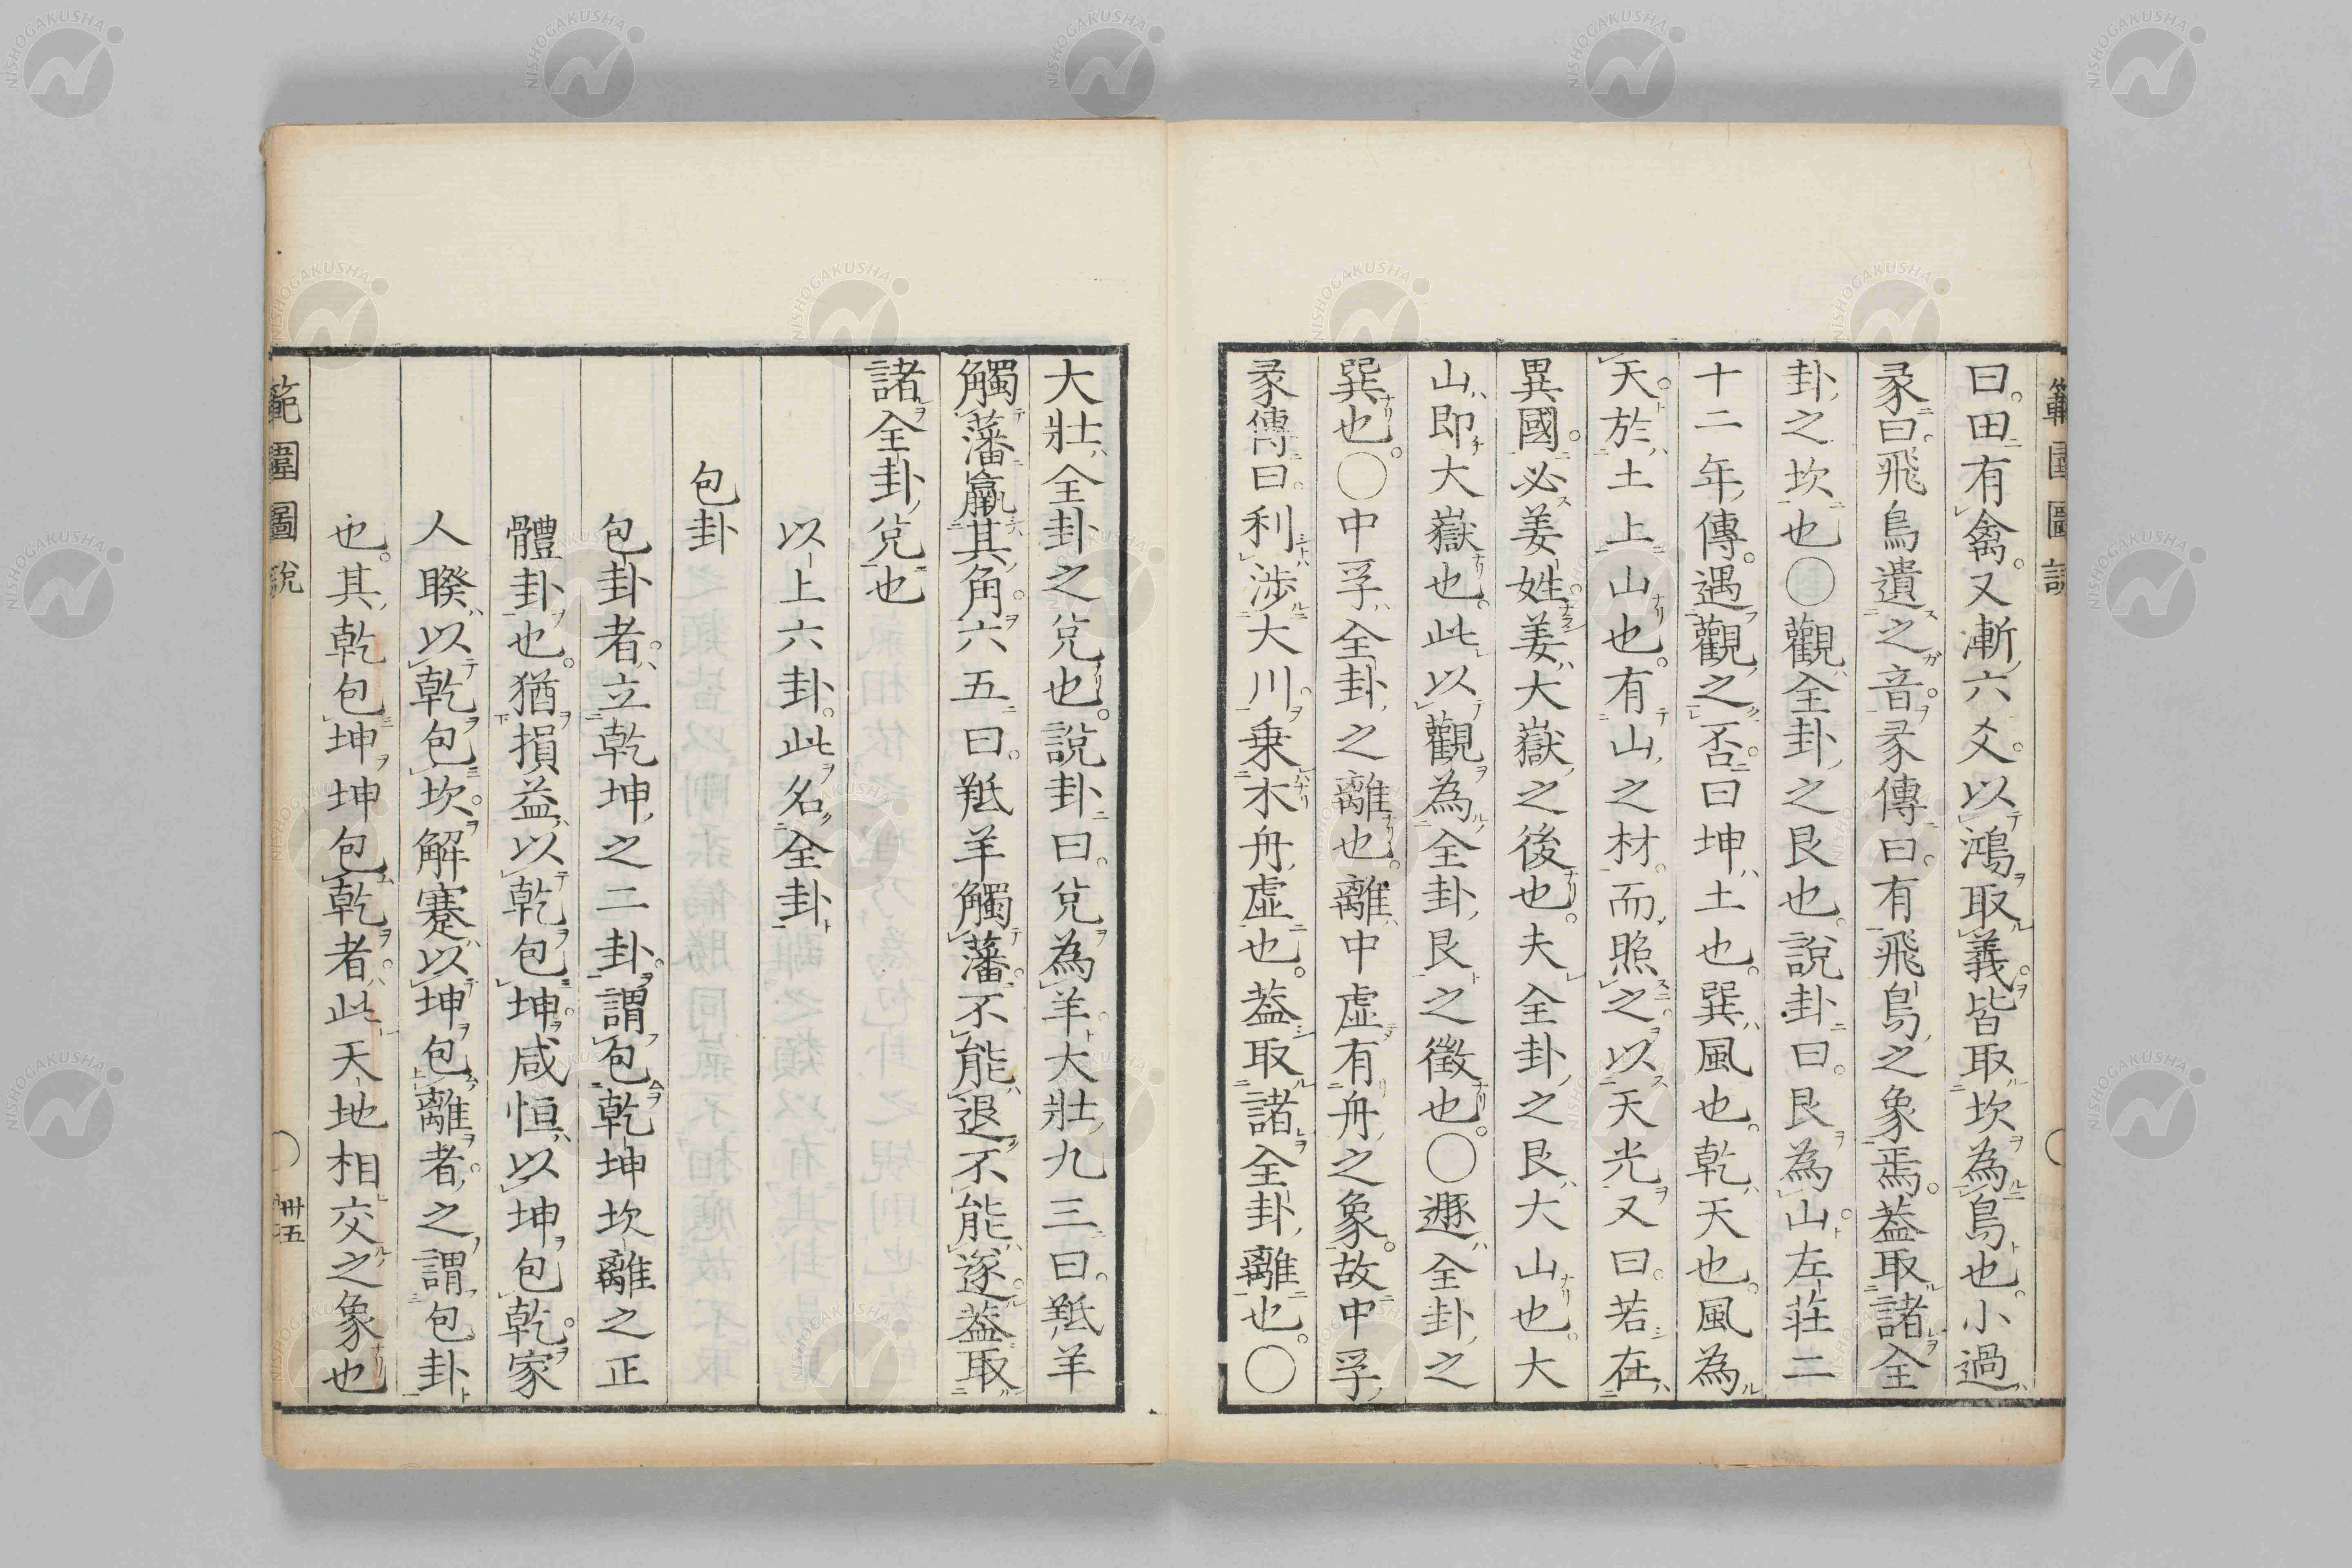 曰。田有禽。又漸六爻。以鴻取義。皆取坎為鳥也。小過
彖曰。飛鳥遺之音。彖傳曰。有飛鳥之象焉。葢取諸全
卦之坎也〇觀全卦之艮也。說卦曰。艮為山。左莊二
十二年傳。遇觀之否。曰坤土也。巽風也。乾天也。風為
天。於土上山也。有山之材。而照之。以天光。又曰。若在
異國。必姜姓。姜大嶽之後也。夫全卦之艮大山也。大
山即大嶽也。此以觀為全卦艮之徵也。〇遯全卦之
巽也。〇中孚全卦之離也。離中虛有舟之象。故中孚
彖傳曰。利涉大川。乗木舟虛也。葢取諸全卦離也。〇
大壯全卦之兌也。說卦曰。兌為羊。大壯九三曰。羝羊
觸藩羸其角。六五曰。羝羊觸藩。不能退。不能遂。葢取
諸全卦兌也
以上六卦。此名全卦
包卦
包卦者。立乾坤之二卦。謂包乾坤坎離之正
體卦也。猶損益以乾包坤。咸恒以坤包乾。家
人睽以乾包坎。解蹇以坤包離者。之謂包卦
也。其乾包坤坤包乾者。此天地相交之象也
範圍圖說
卅五
範圍圖說
NISHOGAKUSHA